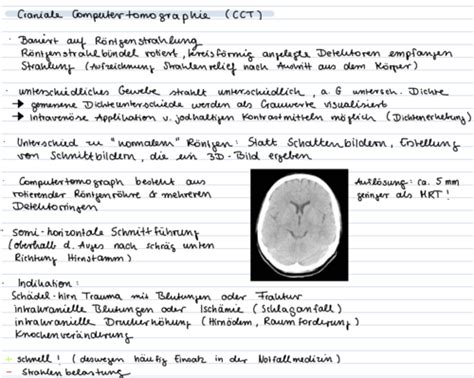 Craniale Computertomographie (CCT)
· Basiert auf Röntgenstrahlung
Röntgenstrahlbündel rotiert, kreisförmig angelegte Detektoren empfangen
Strahlung (Aufzeichnung Strahlenrelief nach Austritt aus dem Körper)
· unterschiedliches Gewebe strahlt unterschiedlich, a. G untersch. Dichte
→ gemessene Dichteunterschiede werden als Grauwerte visualisiert
→ Intravenöse Applikation v. jodhaltigen Kontrastmitteln möglich (Dichteerhebung)
· Unterschied zu "normalem" Röntgen: Statt Schattenbildern, Erstellung
von Schnittbildern, die ein 3D-Bild ergeben
· Computertomograph besteht aus
rotierender Röntgenröhre & mehreren
Detektorringen
Auflösung: ca. 5 mm
geringer als MRT!
· somi-horizontale Schnittführung
(oberhalb d. Auges nach schräg unten
Richtung Hirnstamm)
· Indikation:
Schädel-hirn Trauma mit Blutungen oder Fraktur
intrakranielle Blutungen oder Ischämie (Schlaganfall)
intrakranielle Druckerhöhung (Hirnödem, Raumforderung)
Knochenveränderung
+ schnell! (deswegen häufig Einsatz in der Notfallmedizin)
- Strahlenbelastung